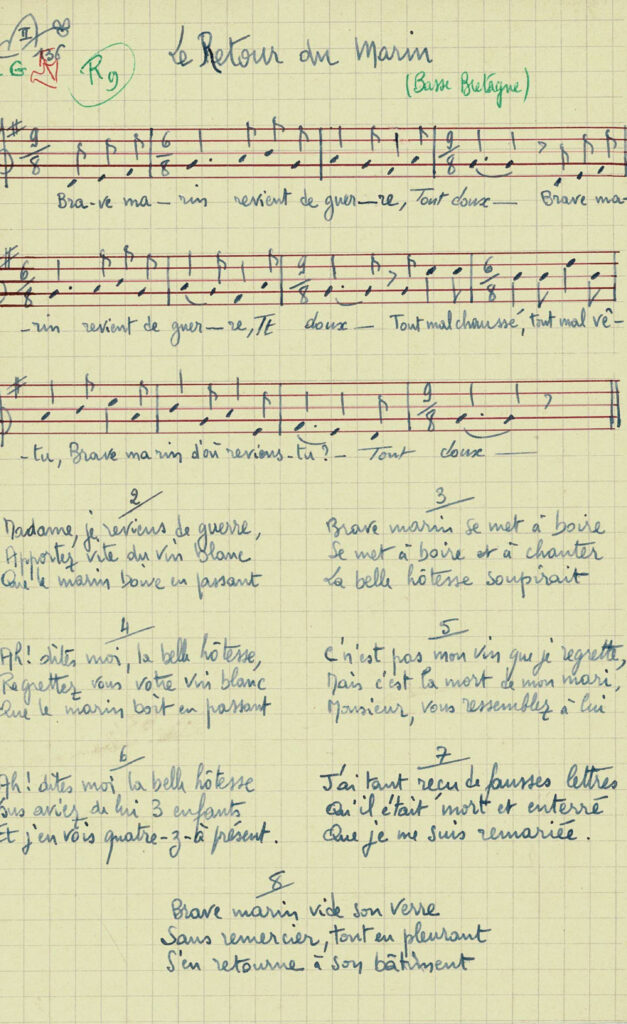 II
136
G
R9
Le Retour du Marin
(Basse Bretagne)
9/8 6/8 9/8
Bra-ve ma-rin revient de guer-re, Tout doux— Brave ma-
6/8 9/8 6/8
-rin revient de guer-re, Tt doux— Tout mal chaussé, tout mal vê-
9/8
-tu, Brave marin d'où reviens-tu?— Tout doux—
2
Madame, je reviens de guerre,
Apportez vite du vin blanc
Que le marin boive en passant
3
Brave marin se met à boire
Se met à boire et à chanter
La belle hôtesse soupirait
4
Ah! dites moi, la belle hôtesse,
Regrettez vous votre vin blanc
Que le marin boit en passant
5
C'n'est pas mon vin que je regrette,
Mais c'est la mort de mon mari,
Monsieur, vous ressemblez à lui
6
Ah! dites moi, la belle hôtesse
ous aviez de lui 3 enfants
Et j'en vois quatre-z-à présent.
7
J'ai tant reçu de fausses lettres
Qu'il était mort et enterré
Que je me suis remariée.
8
Brave marin vide son verre
Sans remercier, tout en pleurant
S'en retourne à son bâtiment